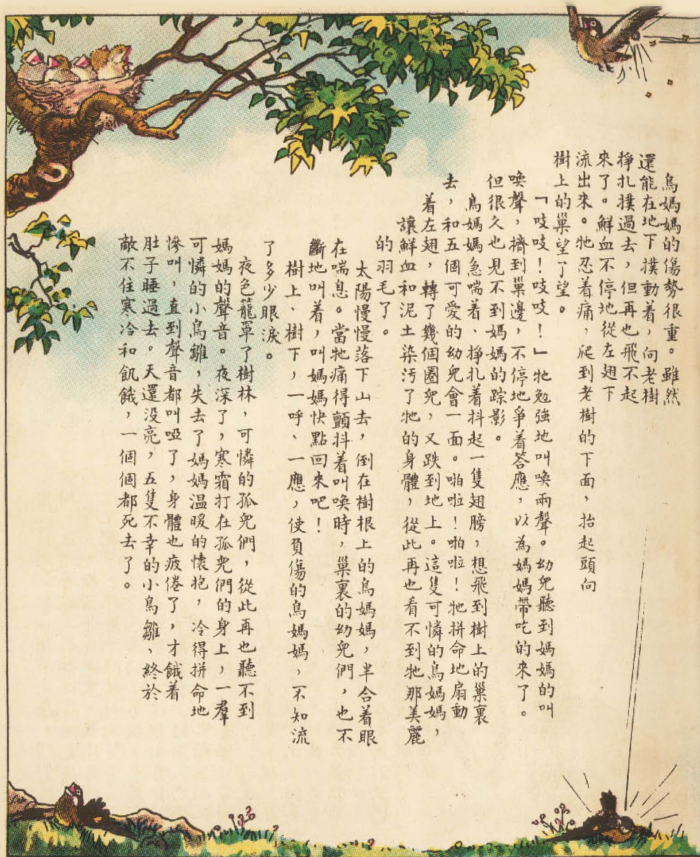 鳥媽媽的傷勢很重。雖然
還能在地下撲動着，向老樹
掙扎撲過去，但再也飛不起
來了。鮮血不停地從左翅下
流出來。牠忍着痛，爬到老樹的下面，抬起頭向
樹上的巢望了望。
「吱吱！吱吱！」牠勉強地叫喚兩聲。幼兒聽到媽媽的叫
喚聲，擠到巢邊，不停地爭着答應，以為媽媽帶吃的來了。
但很久也見不到媽媽的踪影。
鳥媽媽急喘着、掙扎着抖起一隻翅膀，想飛到樹上的巢裏
去，和五個可愛的幼兒會一面。啪啦！啪啦！牠拼命地扇動
着左翅，轉了幾個圈兒，又跌到地上。這隻可憐的鳥媽媽，
讓鮮血和泥土染污了牠的身體，從此再也看不到牠那美麗
的羽毛了。
太陽慢慢落下山去，倒在樹根上的鳥媽媽，半合着眼
在喘息。當牠痛得顫抖着叫喚時，巢裏的幼兒們，也不
斷地叫着，叫媽媽快點回來吧！
樹上、樹下，一呼、一應，使負傷的鳥媽媽，不知流
了多少眼淚。
夜色籠罩了樹林，可憐的孤兒們，從此再也聽不到
媽媽的聲音。夜深了，寒霜打在孤兒們的身上，一羣
可憐的小鳥雛，失去了媽媽溫暖的懷抱，冷得拼命地
慘叫，直到聲音都叫啞了，身體也疲倦了，才餓着
肚子睡過去。天還没亮，五隻不幸的小鳥雛，終於
敵不住寒冷和飢餓，一個個都死去了。